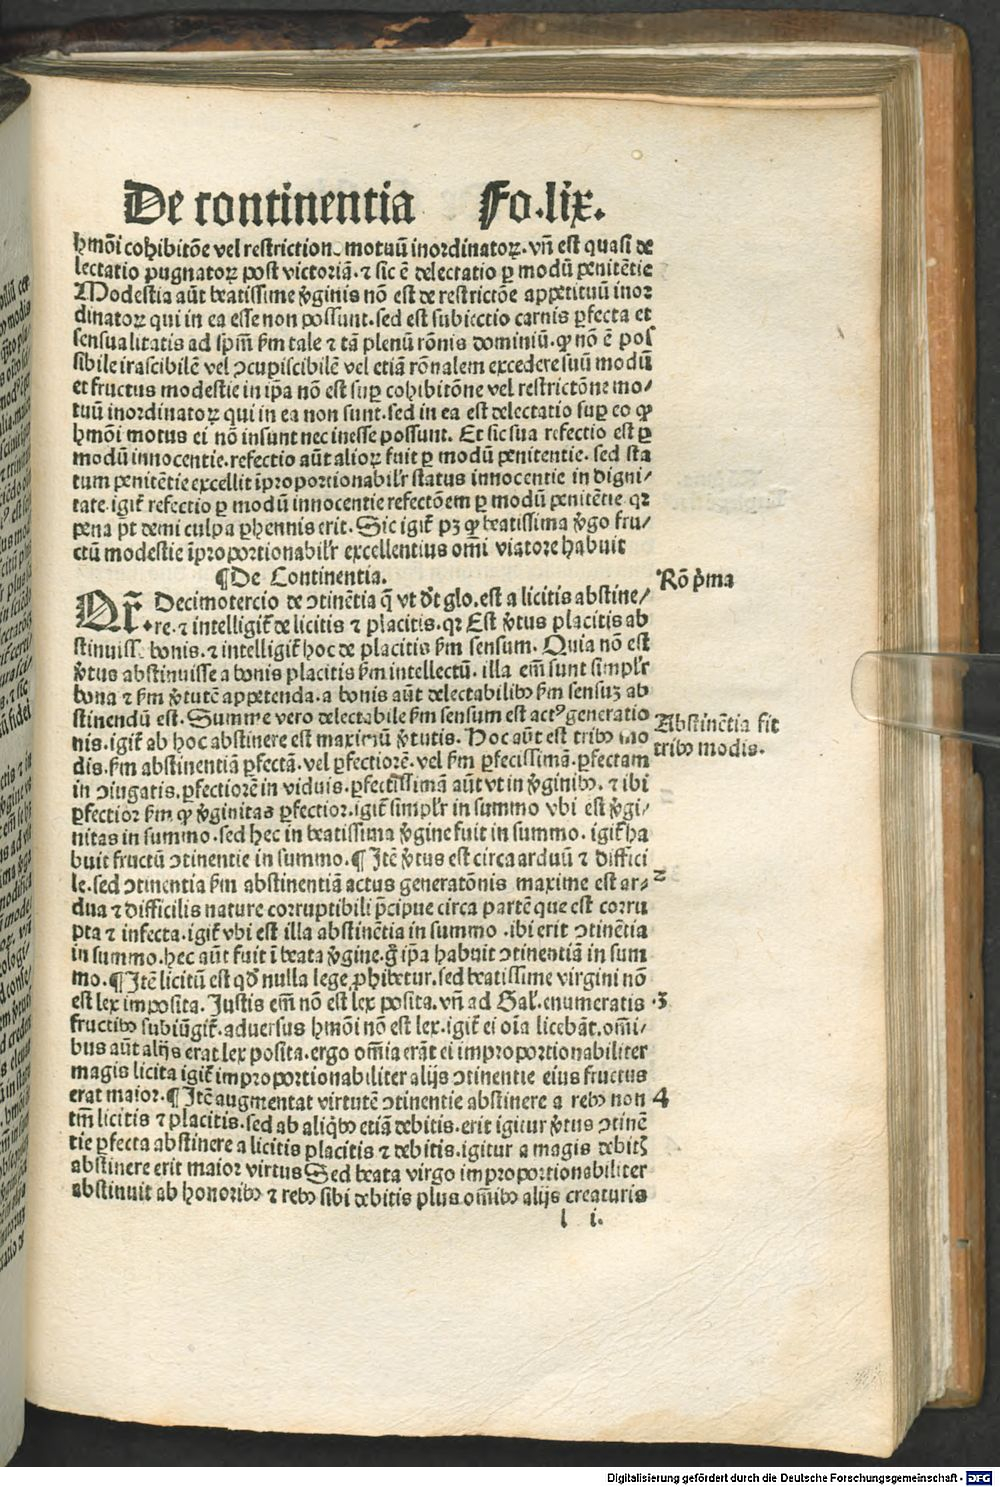 De continentia Fo.lix.
hmōi cohibitōe vel restriction. motuū inordinatoꝝ. vñ est quasi de
lectatio pugnatoꝝ post victoriā. ⁊ sic ē delectatio ꝑ modū penitētie
Modestia aūt beatissime v̓ginis nō est de restrictōe appetituū inor
dinatoꝝ qui in ea esse non possunt. sed est subiectio carnis ꝑfecta et
sensualitatis ad spm̄ ẜm tale ⁊ tā plenū rōnis dominiū. ꝙ nō ē pos
sibile irascibilē vel ↄcupiscibilē vel etiā rōnalem excedere suū modū
et fructus modestie in ip̄a nō est suꝑ cohibitōne vel restrictōne mo/
tuū inordinatoꝝ qui in ea non sunt. sed in ea est delectatio suꝑ eo ꝙ
hmōi motus ei nō insunt nec inesse possunt. Et sic sua refectio est ꝑ
modū innocentie. refectio aūt alioꝝ fuit ꝑ modū penitentie. sed sta
tum penitētie excellit īproportionabilr̓ status innocentie in digni/
tate. igit̄ refectio ꝑ modū innocentie refectōem ꝑ modū penitētie. qꝛ
pena p̄t demi culpa ꝑhennis erit. Sic igit̄ pꝫ ꝙ beatissima v̓go fru/
ctū modestie īproportionabilr̓ excellentius om̄i viatore habuit
¶De Continentia.
Rō p̓ma
Qr̄ Decimotercio de ↄtinētia q̄ vt dt̄ glo. est a licitis abstine/
re. ⁊ intelligit̄ de licitis ⁊ placitis. qꝛ Est v̓tus placitis ab
stinuisse bonis. ⁊ intelligit̄ hoc de placitis ẜm sensum. Quia nō est
v̓tus abstinuisse a bonis placitis ẜm intellectū. illa em̄ sunt simplr̓
bona ⁊ ẜm v̓tutē appetenda. a bonis aūt delectabilibꝰ ẜm sensuꝫ ab
stinendū est. Summe vero delectabile ẜm sensum est actꝰ generatio
nis. igit̄ ab hoc abstinere est maximū v̓tutis. Hoc aūt est tribꝰ mo
Abstinētia fit
tribꝰ modis.
dis. ẜm abstinentiā ꝑfectā. vel ꝑfectiorē. vel ẜm ꝑfectissimā. ꝑfectam
in ↄiugatis. ꝑfectiorē in viduis. ꝑfectissimā aūt vt in v̓ginibꝰ. ⁊ ibi
ꝑfectior ẜm ꝙ v̓ginitas ꝑfectior. igit̄ simplr̓ in summo vbi est v̓gi/
nitas in summo. sed hec in beatissima v̓gine fuit in summo. igit̄ ha
buit fructū ↄtinentie in summo. ¶ Itē v̓tus est circa arduū ⁊ diffici
2
le. sed ↄtinentia ẜm abstinentiā actus generatōnis maxime est ar/
dua ⁊ difficilis nature corruptibili p̄cipue circa partē que est corru
pta ⁊ infecta. igit̄ vbi est illa abstinētia in summo. ibi erit ↄtinētia
in summo. hec aūt fuit ī beata v̓gine. g̊ ip̄a habuit ↄtinentiā in sum
mo. ¶Itē licitū est qd̓ nulla lege ꝓhibetur. sed beatissime virgini nō
est lex imposita. Justis em̄ nō est lex posita. vñ ad Gal̓. enumeratis
.3
fructibꝰ subiūgit̄. aduersus hmōi nō est lex. igit̄ ei oīa licebāt. om̄i/
bus aūt alijs erat lex posita. ergo om̄ia erāt ei improportionabiliter
magis licita igit̄ improportionabiliter alijs ↄtinentie eius fructus
erat maior. ¶ Itē augmentat virtutē ↄtinentie abstinere a rebꝰ non
4
tm̄ licitis ⁊ placitis. sed ab aliqb̓ꝰ etiā debitis. erit igitur v̓tus ↄtinē
tie ꝑfecta abstinere a licitis placitis ⁊ debitis. igitur a magis debitꝭ
abstinere erit maior virtus Sed beata virgo improportionabiliter
abstinuit ab honoribꝰ ⁊ rebꝰ sibi debitis plus om̄ibꝰ alijs creaturis
l i.
Digitalisierung gefördert durch die Deutsche Forschungsgemeinschaft - DFG